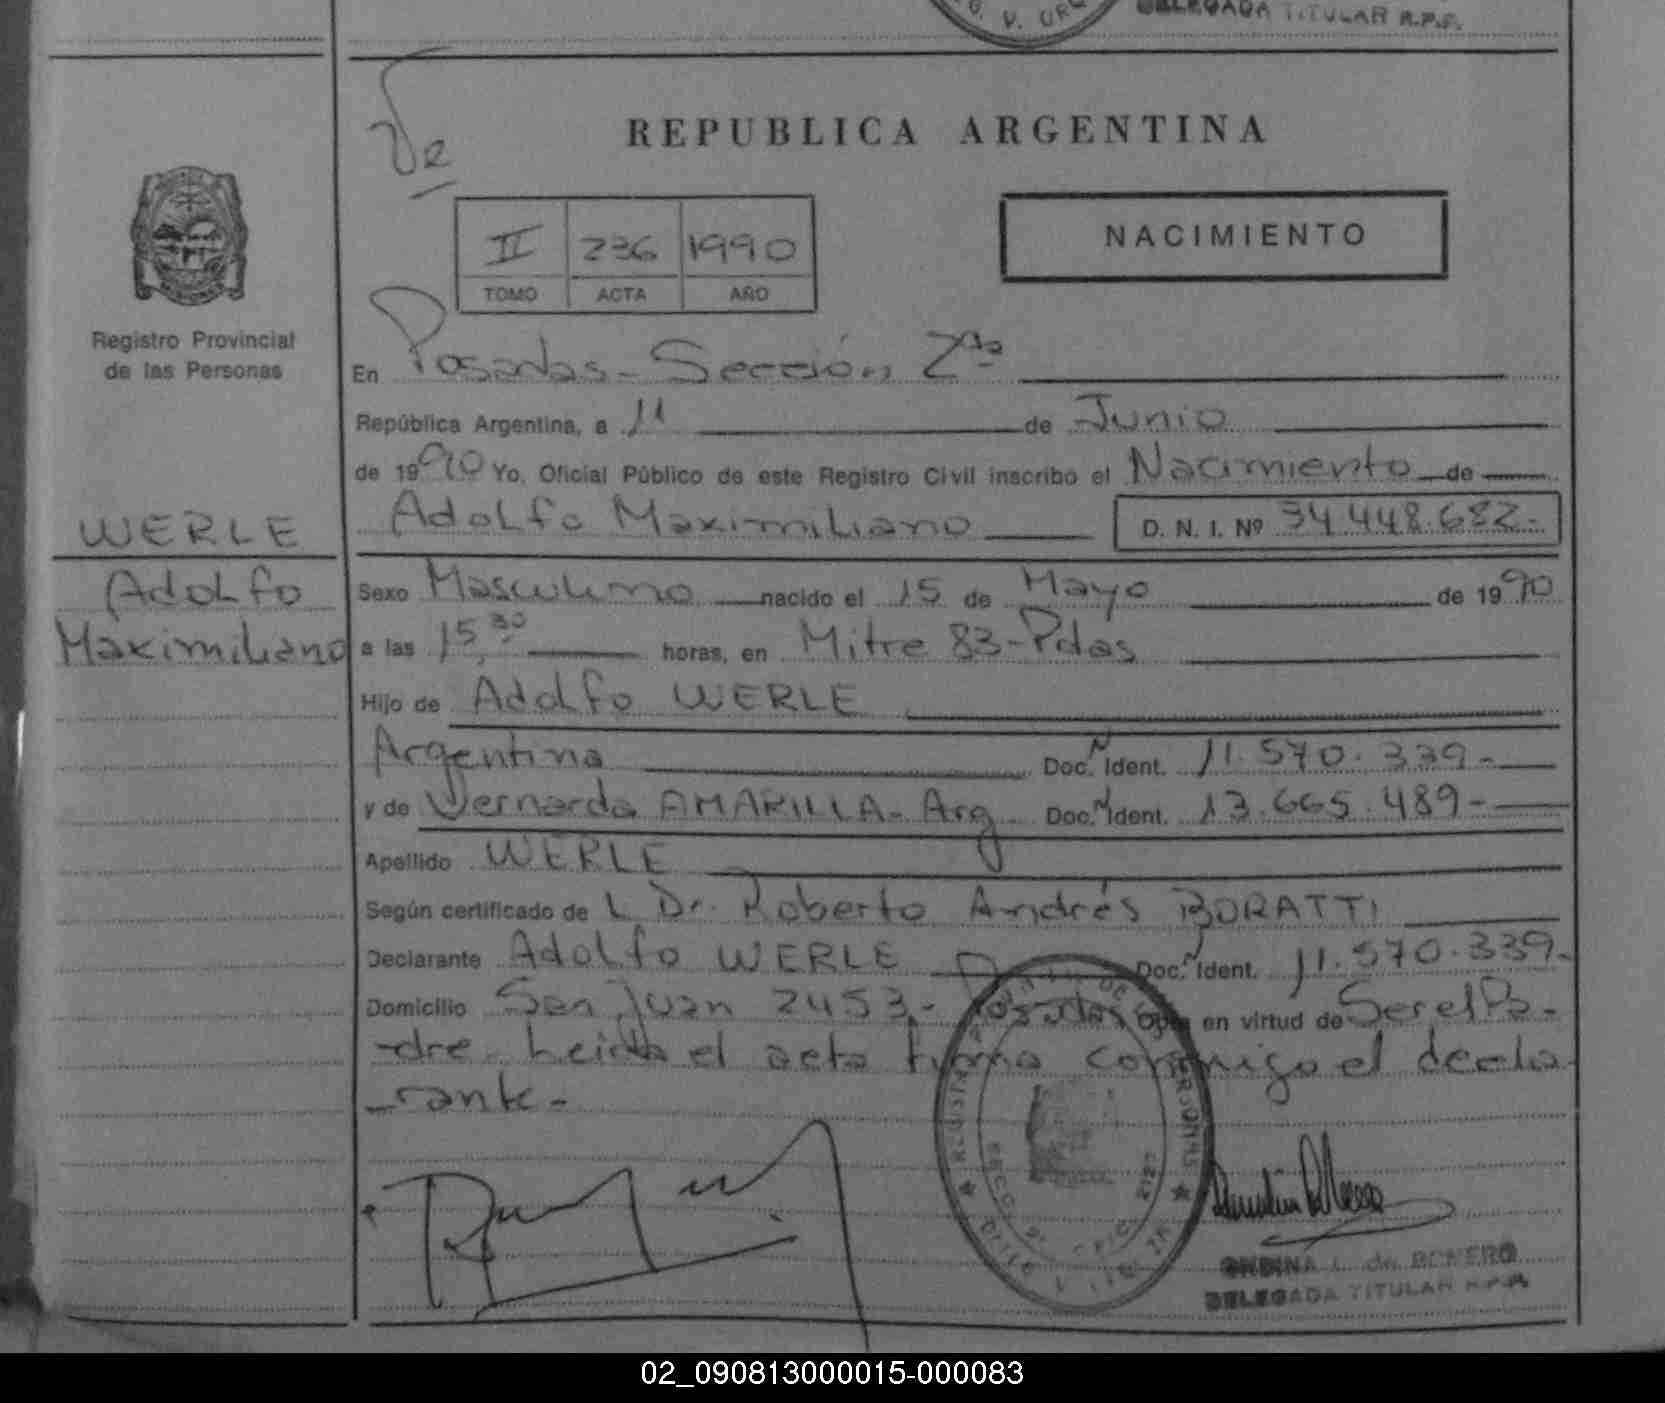 G. V. URQ
DELEGADA TITULAR R.P.P.
REPUBLICA ARGENTINA
II 236 1990
TOMO ACTA AÑO
NACIMIENTO
Registro Provincial
de las Personas
En Posadas - Sección 2da
República Argentina, a 11 de Junio
de 1990 Yo, Oficial Público de este Registro Civil inscribo el Nacimiento de
Adolfo Maximiliano D. N. I. Nº 34.448.682.-
WERLE
Adolfo
Maximiliano
Sexo Masculino nacido el 15 de Mayo de 1990
a las 15,30 horas, en Mitre 83 - Pdas
Hijo de Adolfo WERLE
Argentina Doc. N Ident. 11.570.339.-
y de Bernarda AMARILLA - Arg. Doc. N Ident. 13.665.489-
Apellido WERLE
Según certificado de L Dr. Roberto Andrés BORATTI
Declarante Adolfo WERLE Doc. N Ident. 11.570.339-
Domicilio San Juan 2453,- Posadas Obra en virtud de Ser el Pa-
-dre. Leida el acta firma conmigo el decla-
-rante-
ONDINA L. de ROMERO
DELEGADA TITULAR R.P.P.
02_090813000015-000083